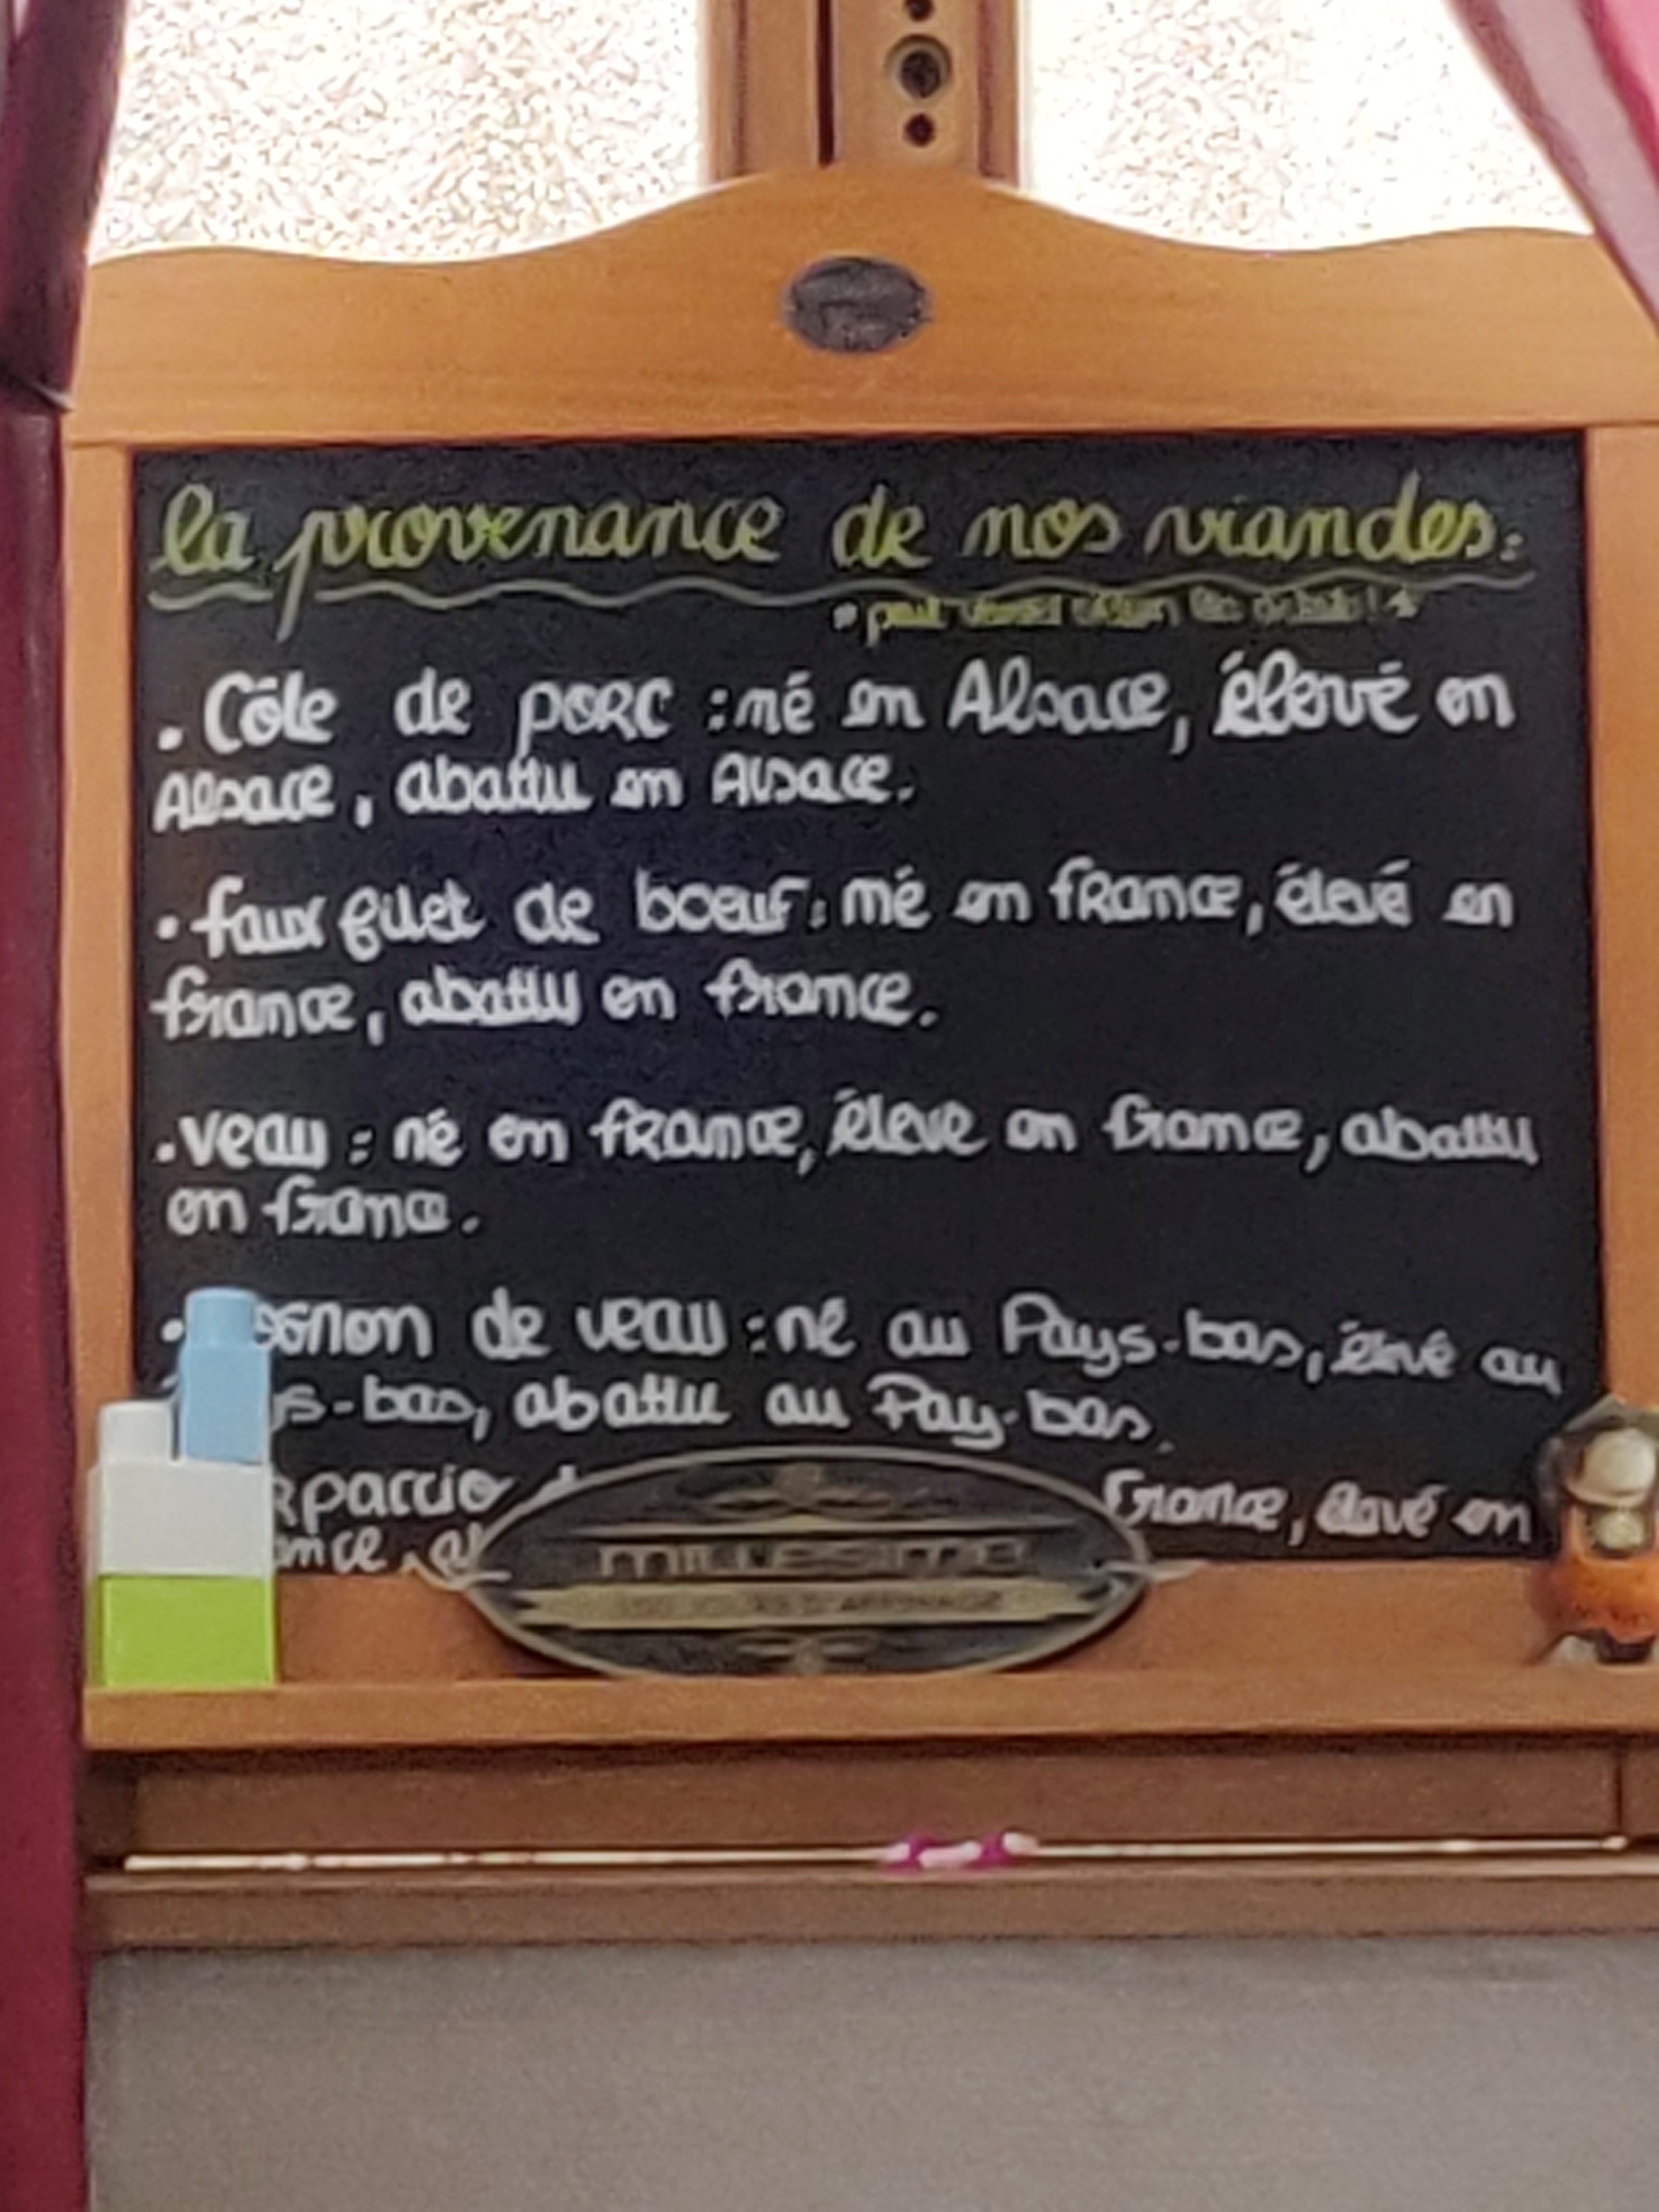 la provenance de nos viandes:
* peut
. Côte de porc : né en Alsace, élevé en
Alsace, abattu en Alsace.
. faux filet de boeuf : né en france, élevé en
france, abattu en france.
. veau : né en france, éleve en france, abattu
en france.
ognon de veau : né au Pays-bas, élevé au
ys-bas, abattu au Pay-bas.
rpaccio france, élevé en
ance, ab
MILLESIME
100 JOURS D'AFFINAGE